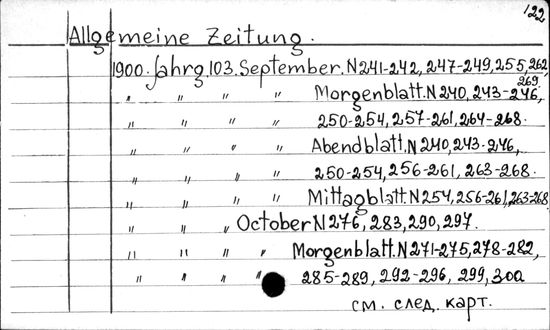 122
Allgemeine Zeitung.
1900. Jahrg. 103. September. N241-242, 247-249, 255, 262,
269.
" " " " Morgenblatt. N240, 243-246,
" " " " 250-254, 257-261, 264-268.
" " " " Abendblatt. N240, 243-246,
" " " " 250-254, 256-261, 263-268.
" " " " Mittagblatt. N254, 256-261, 263-268
" " " October N276, 283, 290, 297.
" " " " Morgenblatt. N271-275, 278-282,
" " " " 285-289, 292-296, 299, 300
см. след. карт.